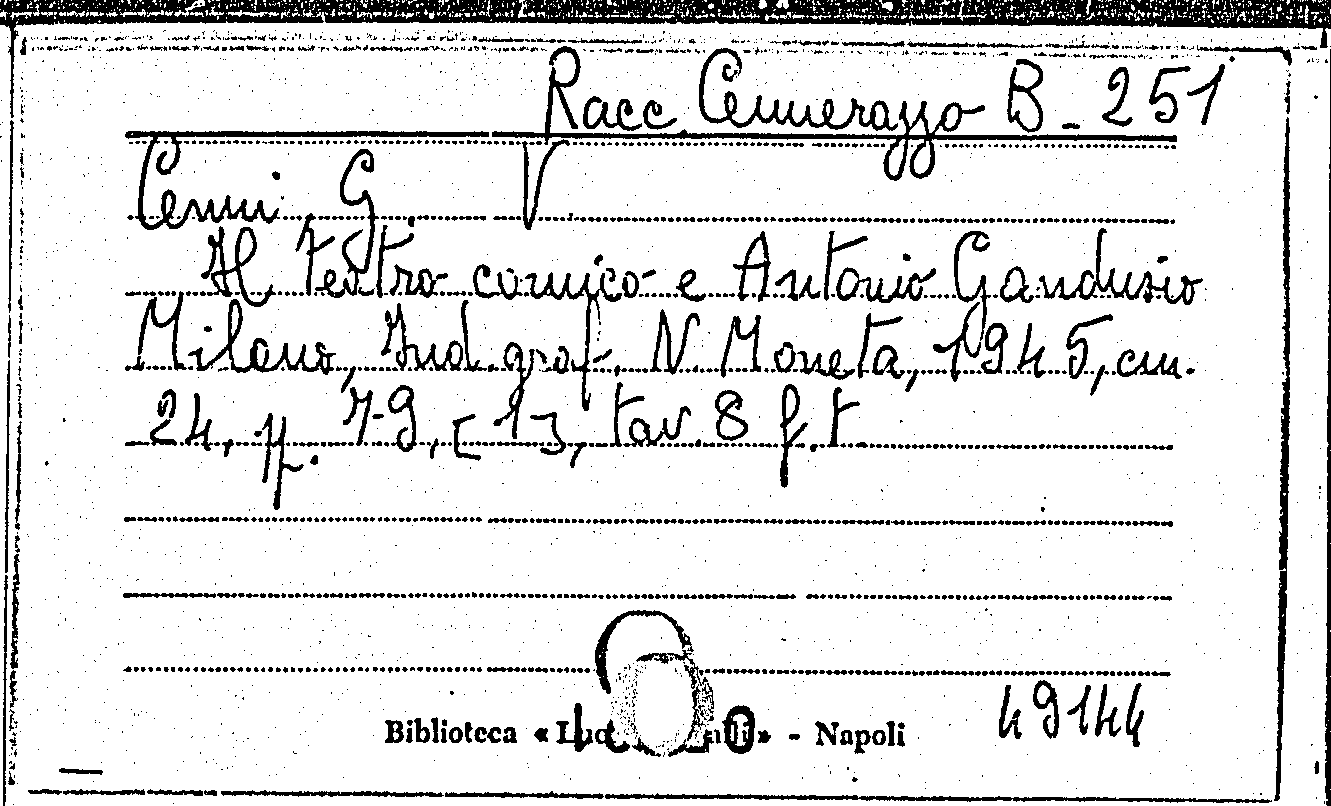 Racc. Cennerazzo B - 251
Cenni, G. V.
Il Teatro comico e Antonio Gandusio
Milano, Ind. graf. N. Moneta, 1945, cm.
24, p. 79, [1], tav. 8 f.t.
Biblioteca « » - Napoli
49144